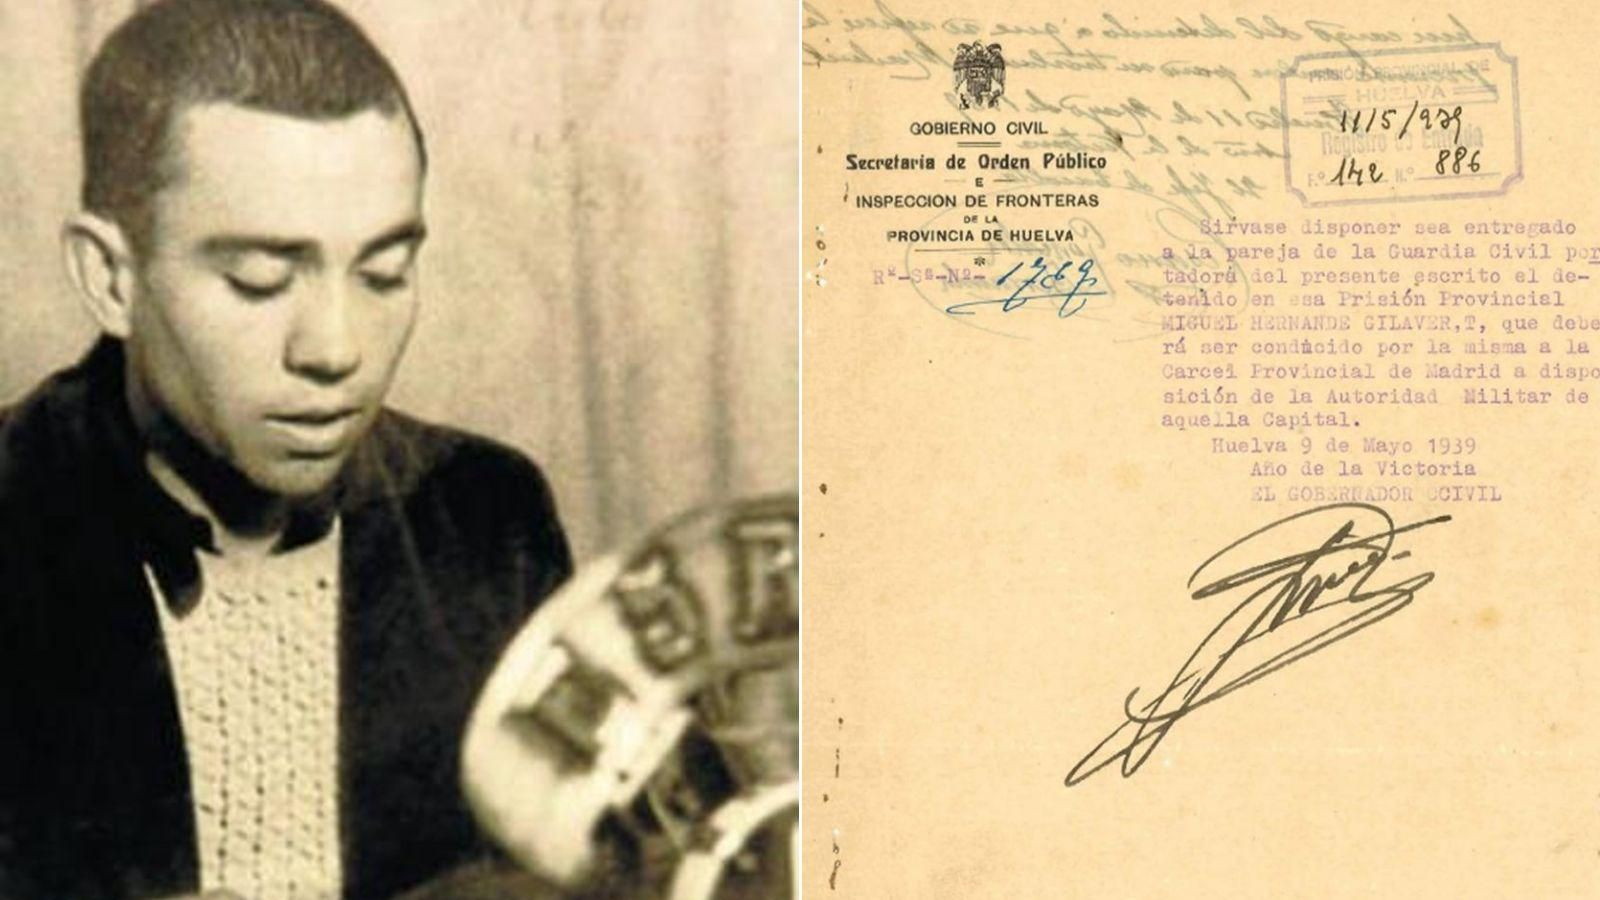 GOBIERNO CIVIL
Secretaría de Orden Público
E
INSPECCION DE FRONTERAS
DE LA
PROVINCIA DE HUELVA
*
Rº-Sª-Nº- 1769
PRISIÓN PROVINCIAL DE
HUELVA
11/5/939
Registro de Entrada
F.º 142 N.º 886
Sírvase disponer sea entregado
a la pareja de la Guardia Civil por
tadora del presente escrito el de-
tenido en esa Prisión Provincial
MIGUEL HERNANDE GILAVER,T, que debe
rá ser conducido por la misma a la
Carcel Provincial de Madrid a dispo
sición de la Autoridad Militar de
aquella Capital.
Huelva 9 de Mayo 1939
Año de la Victoria
EL GOBERNADOR CCIVIL